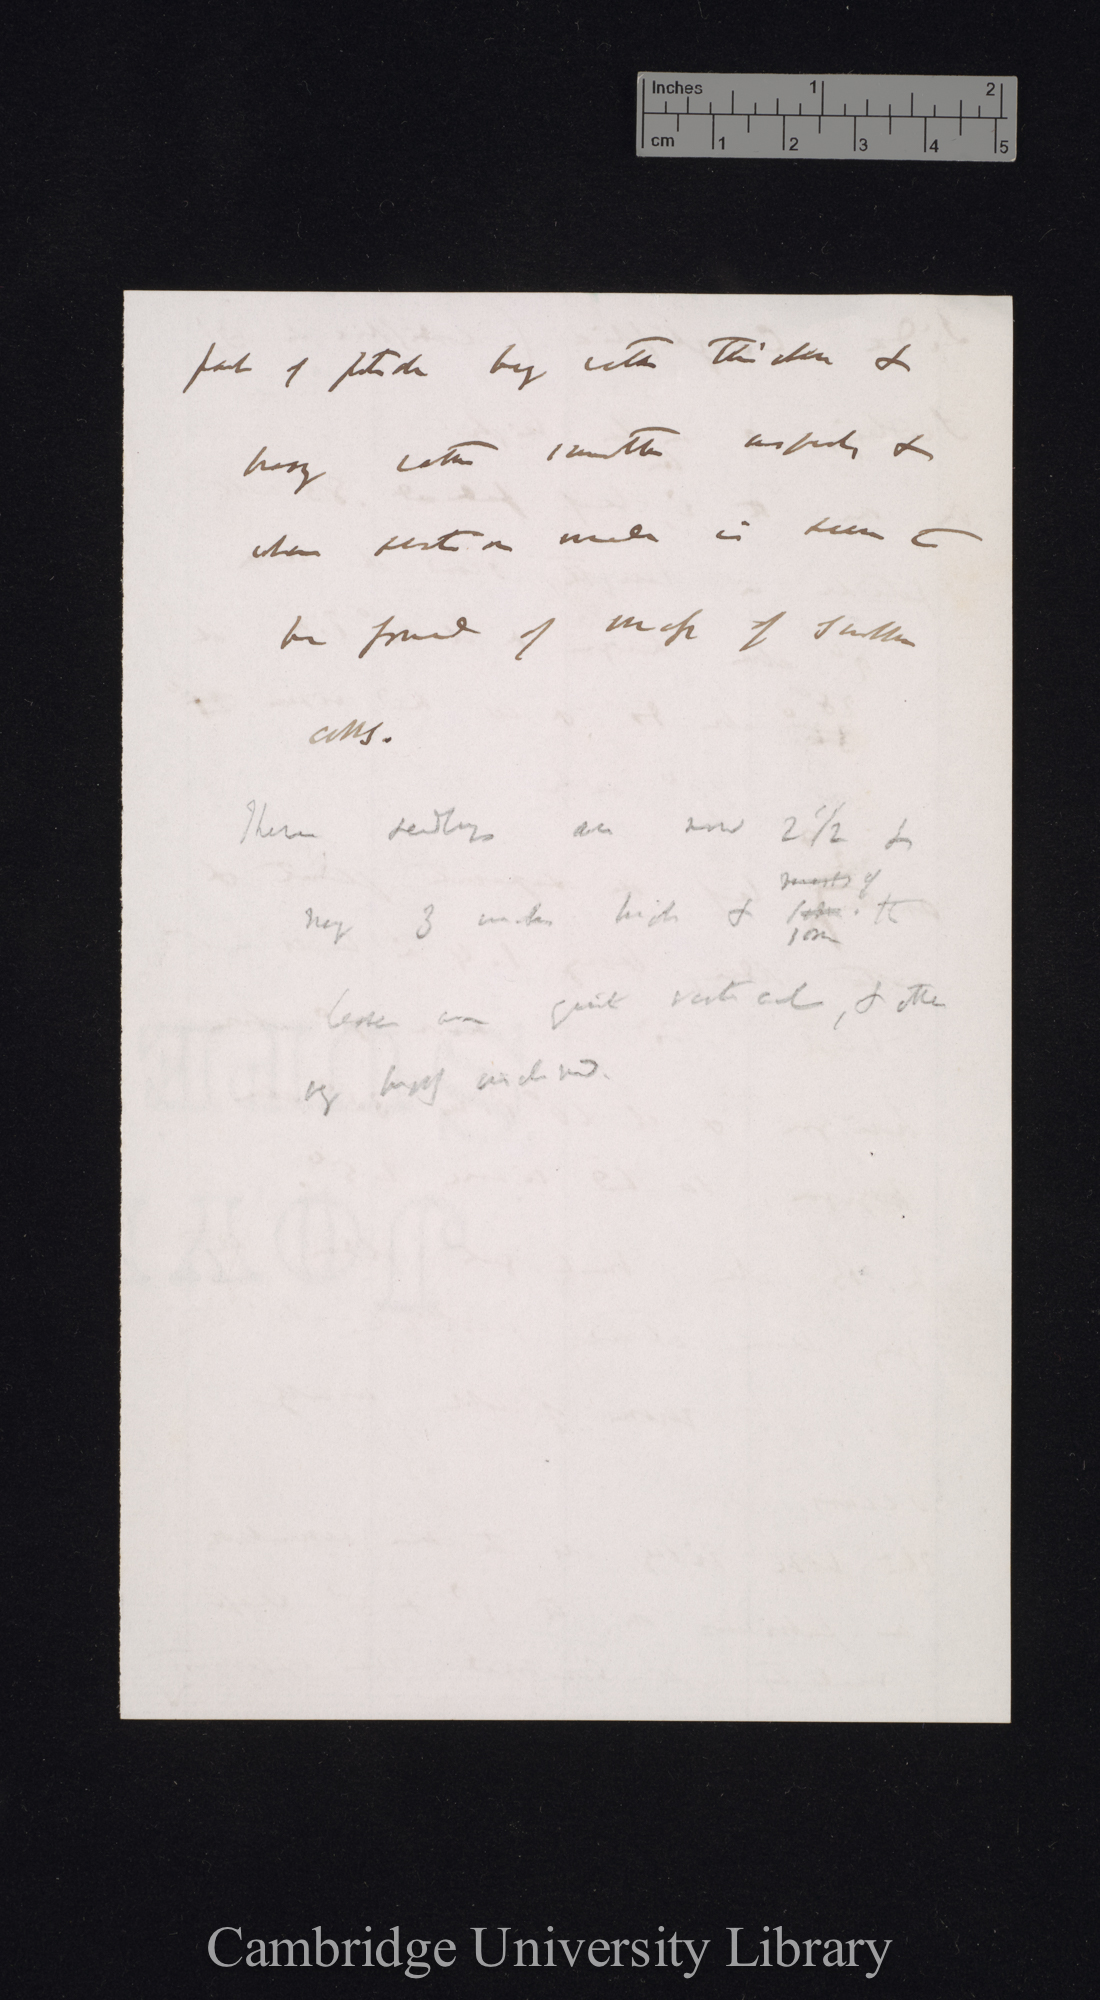 Inches 1 2
cm 1 2 3 4 5
part of petiole being rather thicker &
having rather smoother aspect, &
when section made is seen to
be formed of mass of smaller
cells.
These seedlings are now 2 1/2 &
3 inches high & some the
leaves are quite vertical, & other
highly inclined.
Cambridge University Library